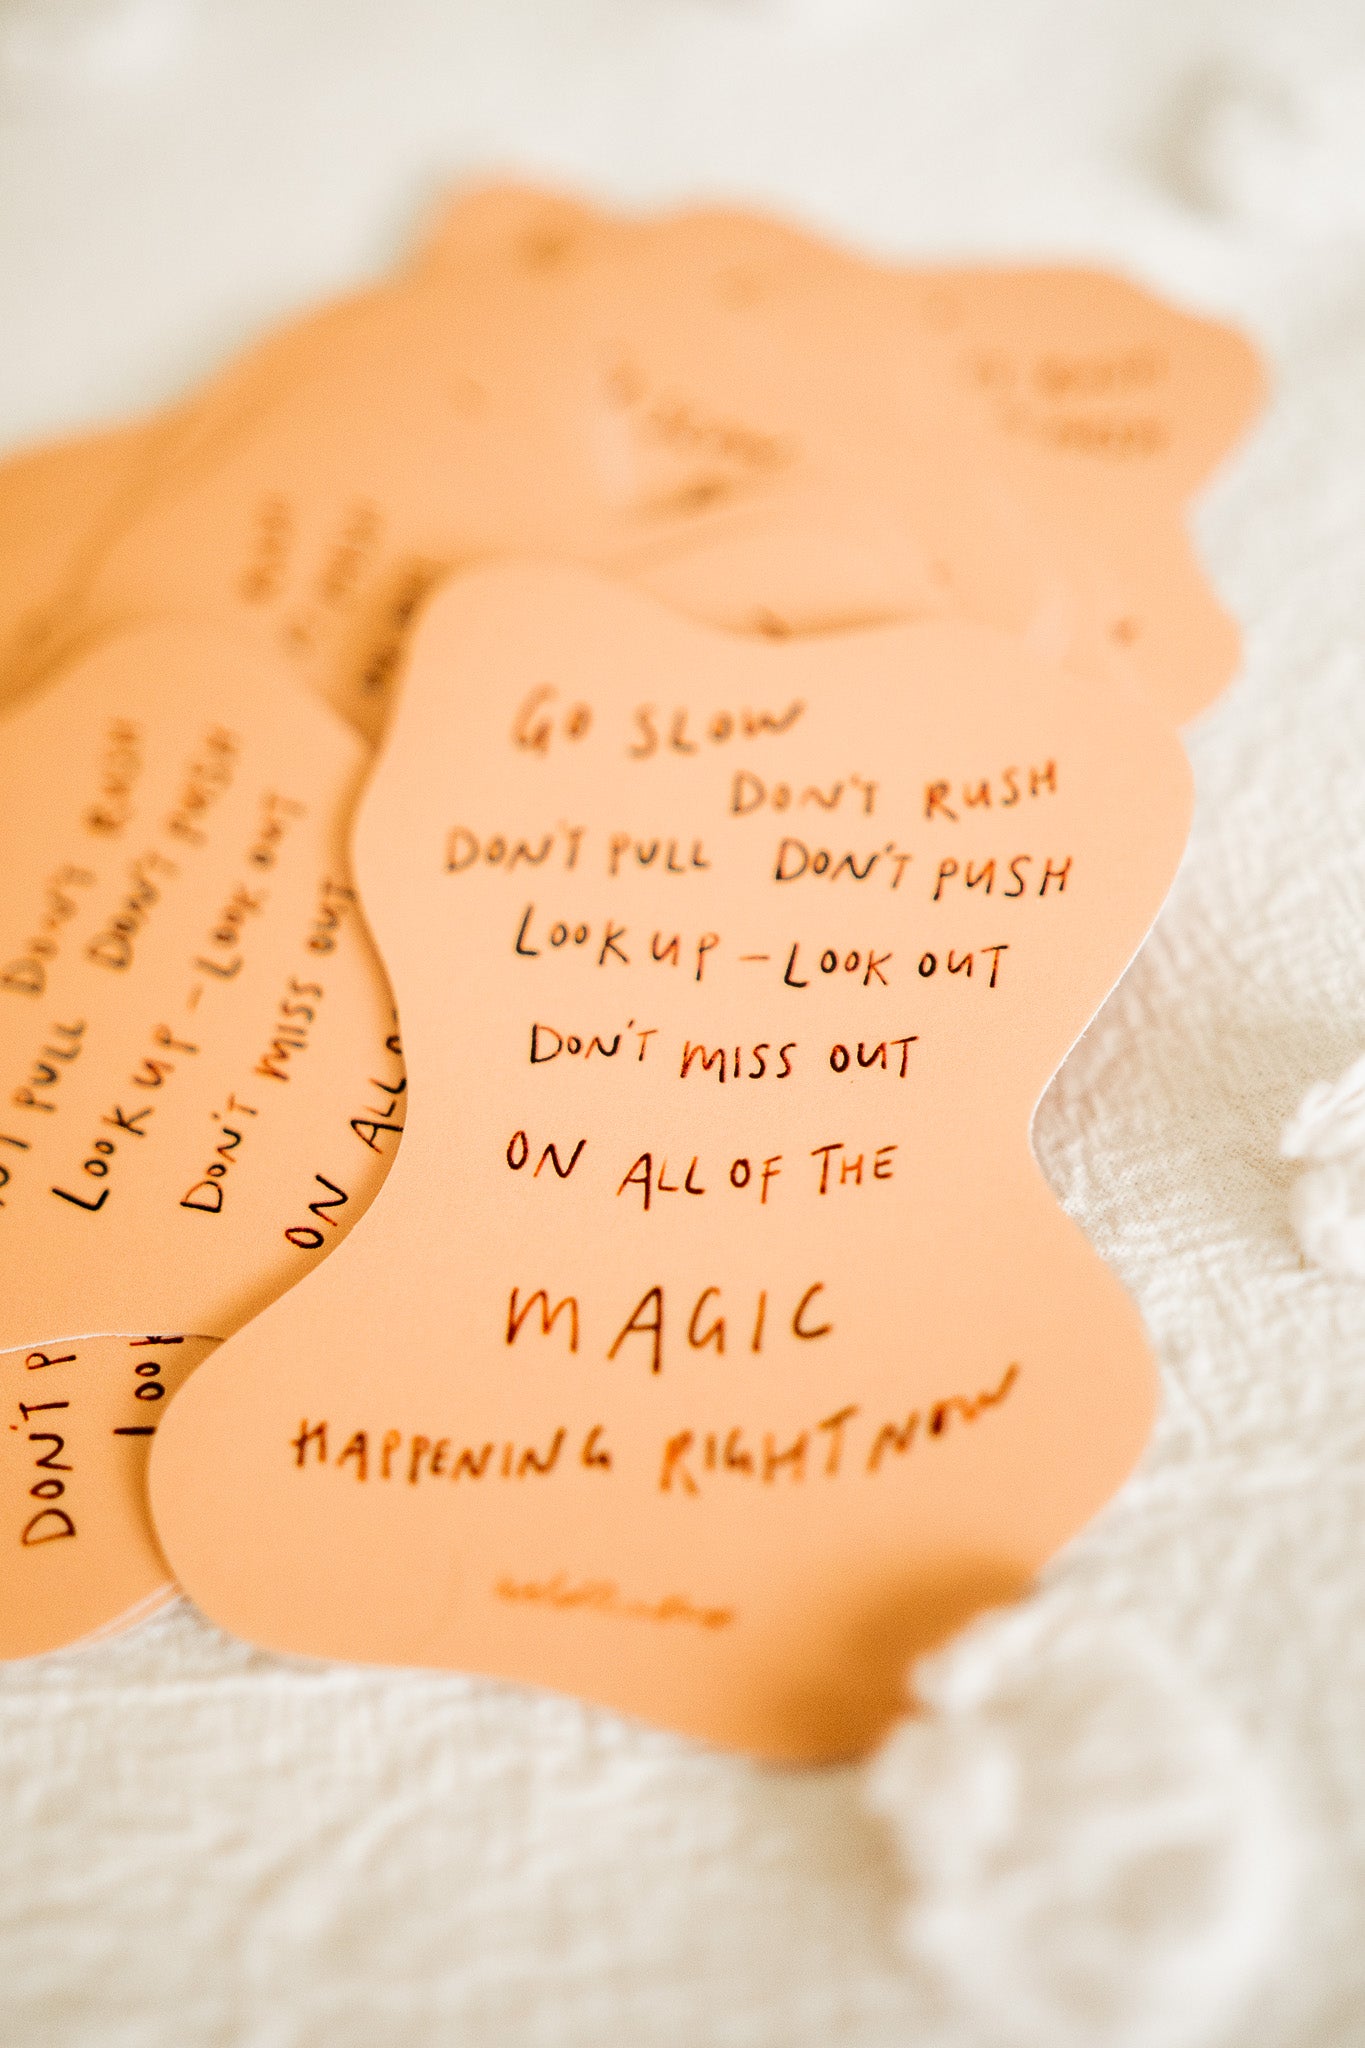 GO SLOW
DON'T RUSH
DON'T PULL DON'T PUSH
LOOK UP - LOOK OUT
DON'T MISS OUT
ON ALL OF THE
MAGIC
HAPPENING RIGHT NOW
DON'T RUSH
PULL DON'T PUSH
LOOK UP - LOOK OUT
DON'T MISS OUT
ON ALL
DON'T P
LOOK